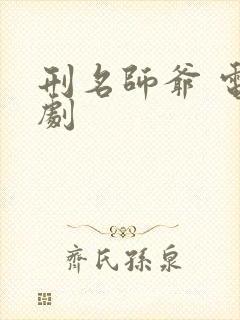 刑名師爺 電
劇
齊氏孫泉